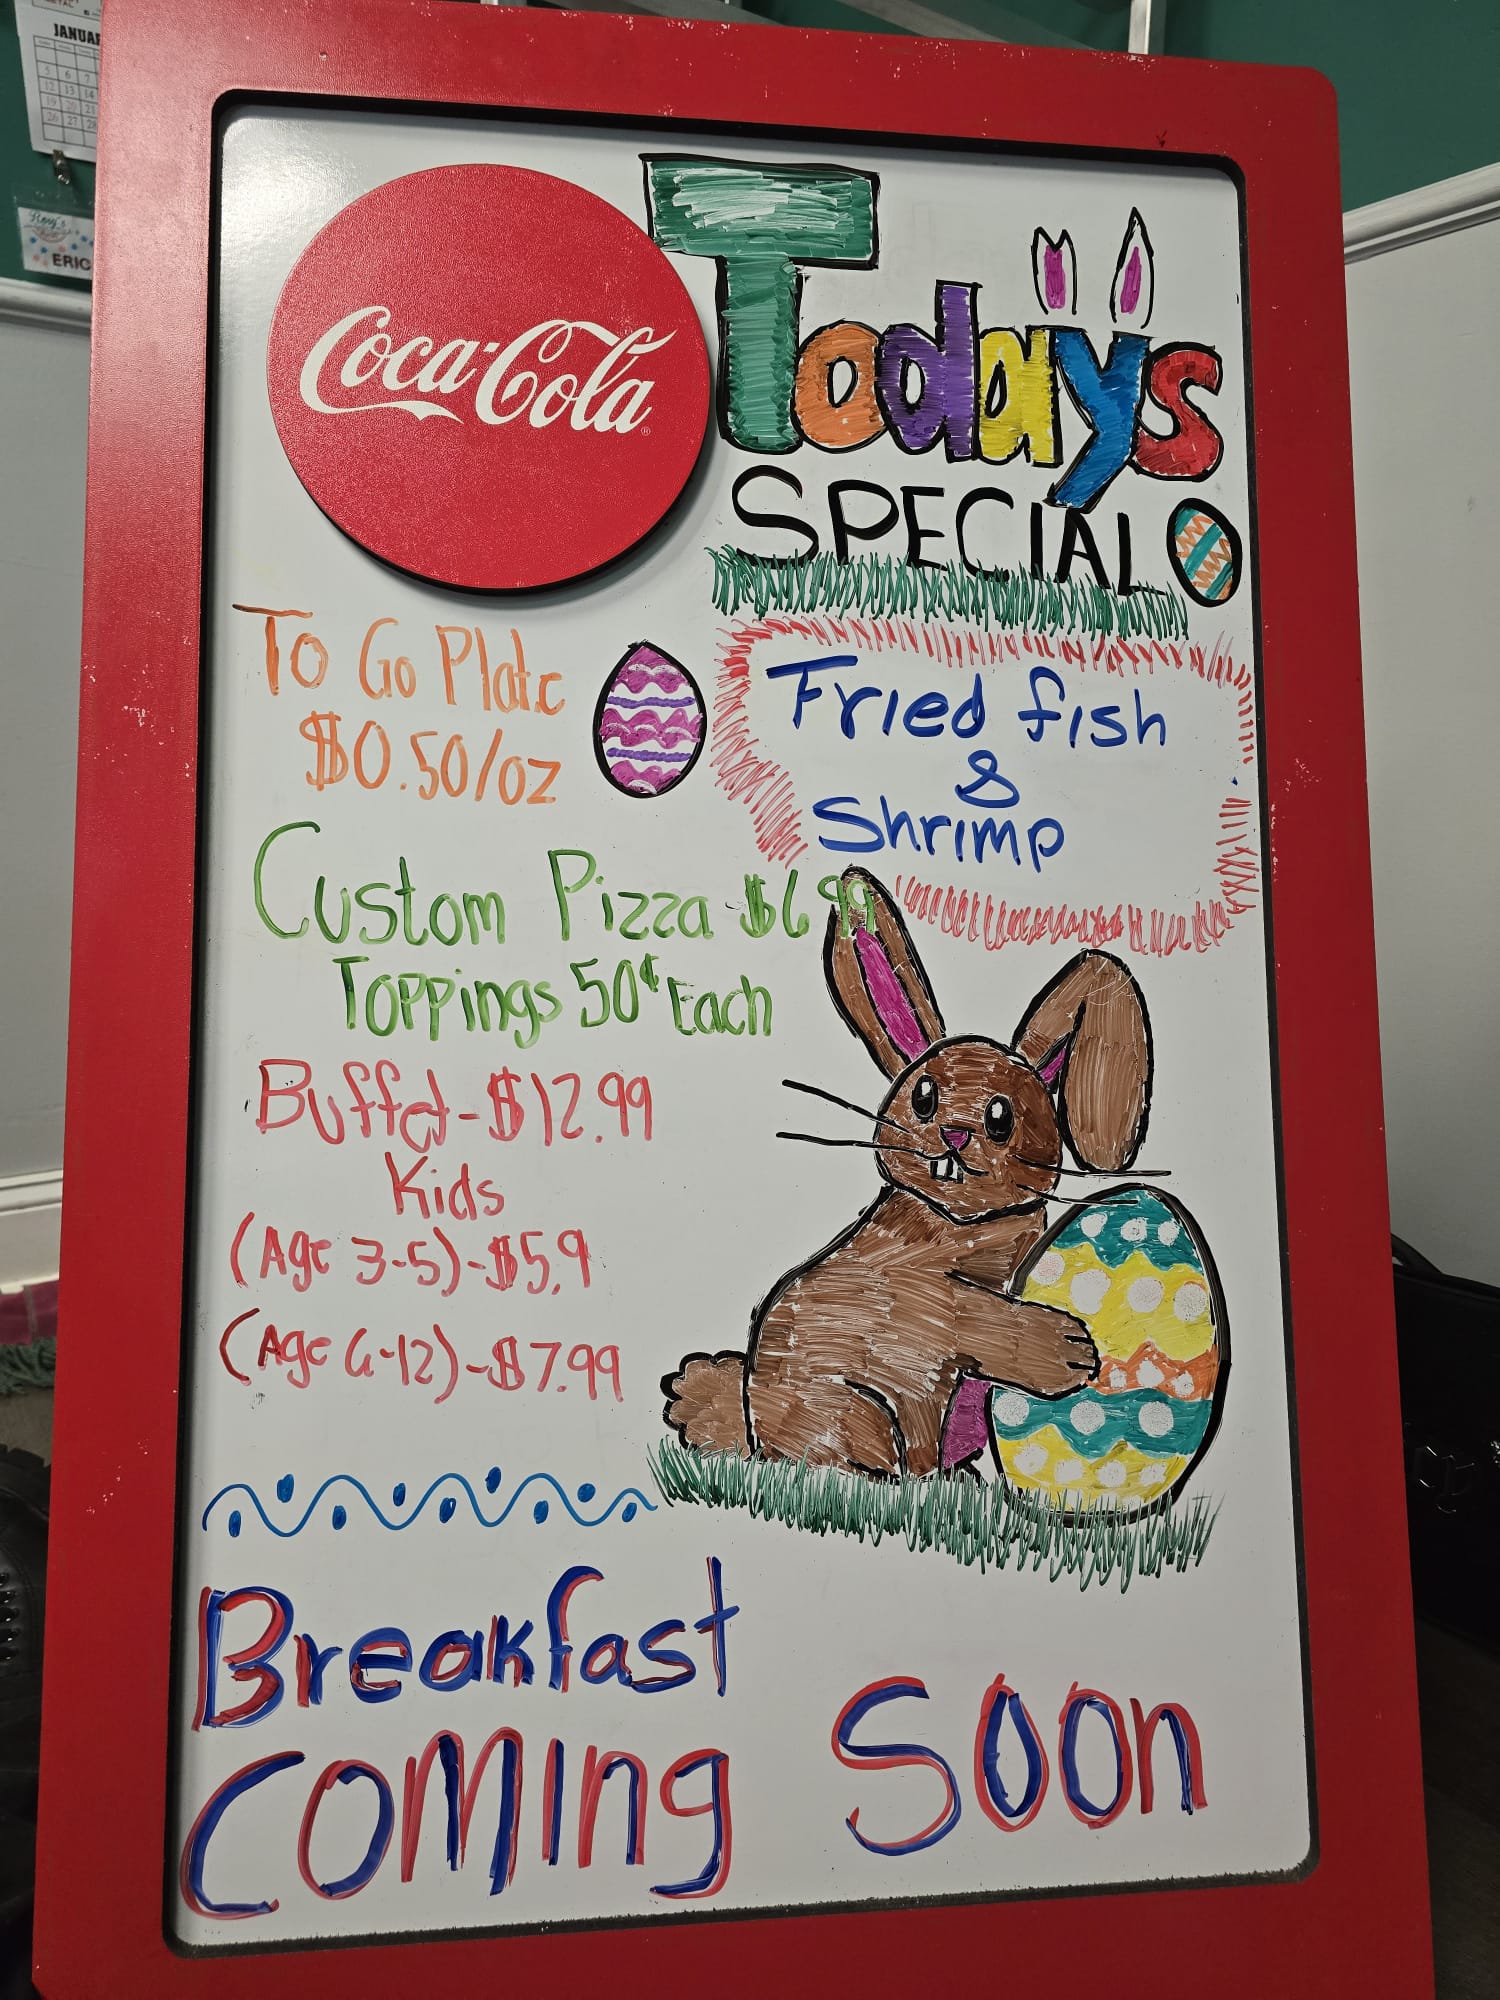 JANUAR
5 6 7
12 13 14
19 20 21
26 27 28
ERIC
Coca-Cola
®
Todays
SPECIAL
To Go Plate
$0.50/oz
Fried fish
&
Shrimp
Custom Pizza $6.99
Toppings 50¢ Each
Buffet - $12.99
Kids
(Age 3-5) - $5.9
(Age 6-12) - $7.99
Breakfast
Coming Soon